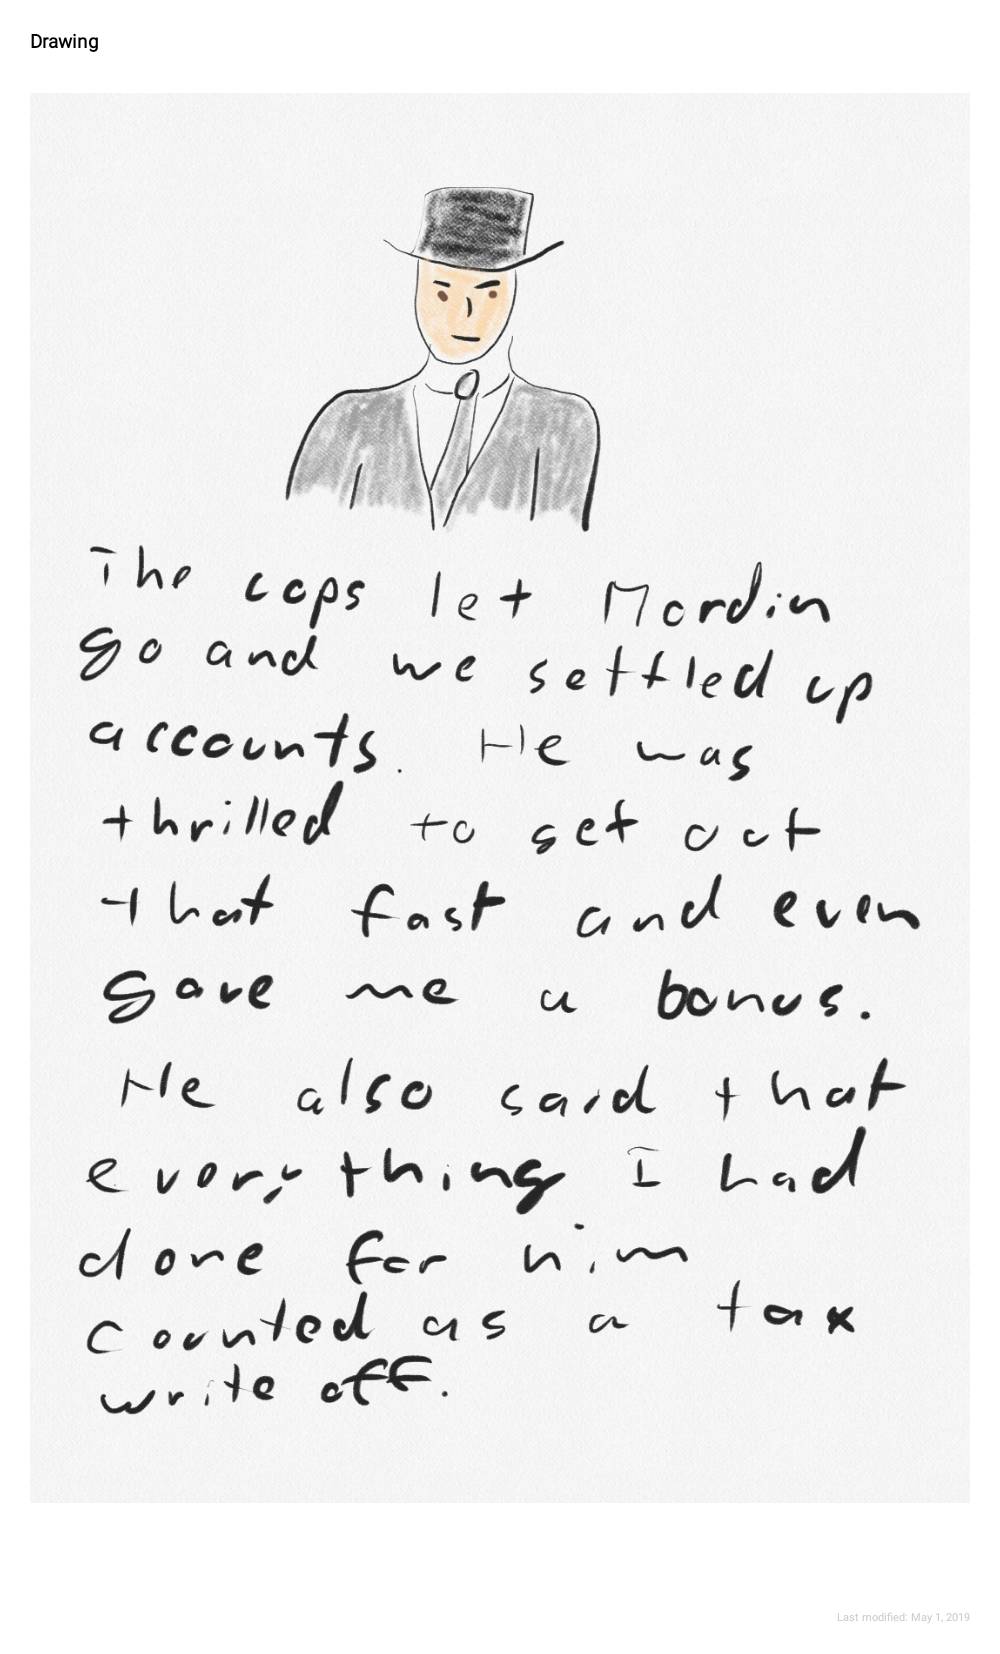 Drawing
The cops let Mordin
go and we settled up
accounts. He was
thrilled to get out
that fast and even
gave me a bonus.
He also said that
every thing I had
done for him
counted as a tax
write off.
Last modified: May 1, 2019